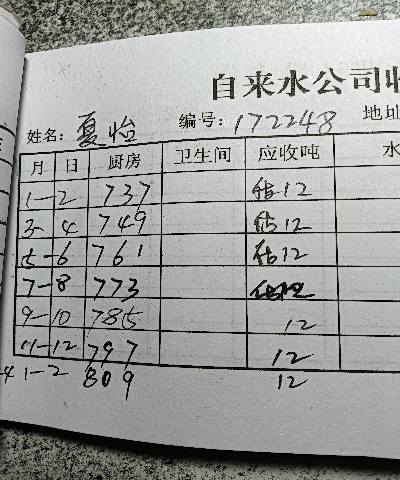 自来水公司收
姓名：夏怡 编号：172248 地址
月 日 厨房 卫生间 应收吨 水
1-2 737 估12
3-4 749 估12
5-6 761 估12
7-8 773 估12
9-10 785 12
11-12 797 12
1-2 809 12